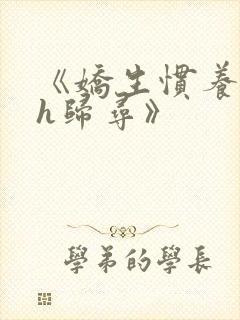 《嬌生慣養
h歸尋》
學弟的學長